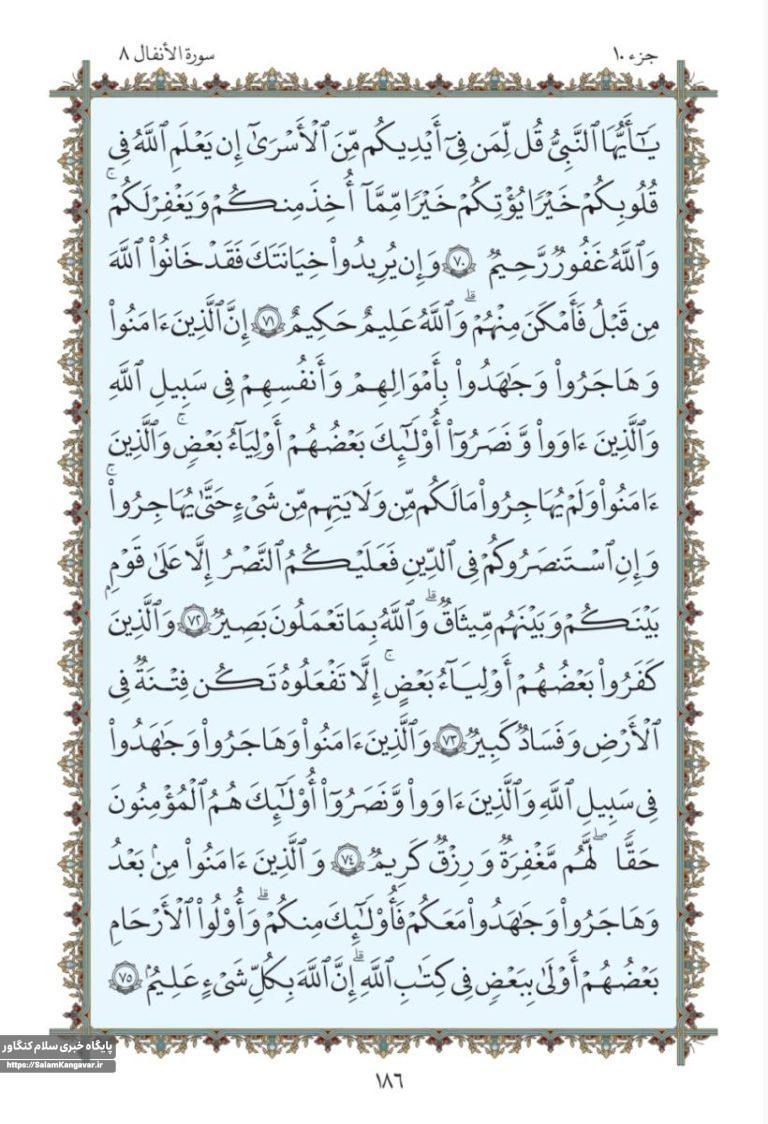 جزء ۱۰
سورة الأنفال ۸
يَـٰٓأَيُّهَا ٱلنَّبِىُّ قُل لِّمَن فِىٓ أَيْدِيكُم مِّنَ ٱلْأَسْرَىٰٓ إِن يَعْلَمِ ٱللَّهُ فِى
قُلُوبِكُمْ خَيْرًا يُؤْتِكُمْ خَيْرًا مِّمَّآ أُخِذَ مِنكُمْ وَيَغْفِرْ لَكُمْ ۚ
وَٱللَّهُ غَفُورٌ رَّحِيمٌ ۝٧٠ وَإِن يُرِيدُوا۟ خِيَانَتَكَ فَقَدْ خَانُوا۟ ٱللَّهَ
مِن قَبْلُ فَأَمْكَنَ مِنْهُمْ ۗ وَٱللَّهُ عَلِيمٌ حَكِيمٌ ۝٧١ إِنَّ ٱلَّذِينَ ءَامَنُوا۟
وَهَاجَرُوا۟ وَجَـٰهَدُوا۟ بِأَمْوَٰلِهِمْ وَأَنفُسِهِمْ فِى سَبِيلِ ٱللَّهِ
وَٱلَّذِينَ ءَاوَوا۟ وَّنَصَرُوٓا۟ أُو۟لَـٰٓئِكَ بَعْضُهُمْ أَوْلِيَآءُ بَعْضٍ ۚ وَٱلَّذِينَ
ءَامَنُوا۟ وَلَمْ يُهَاجِرُوا۟ مَالَكُم مِّن وَلَـٰيَتِهِم مِّن شَىْءٍ حَتَّىٰ يُهَاجِرُوا۟ ۚ
وَإِنِ ٱسْتَنصَرُوكُمْ فِى ٱلدِّينِ فَعَلَيْكُمُ ٱلنَّصْرُ إِلَّا عَلَىٰ قَوْمٍۭ
بَيْنَكُمْ وَبَيْنَهُم مِّيثَـٰقٌ ۗ وَٱللَّهُ بِمَا تَعْمَلُونَ بَصِيرٌ ۝٧٢ وَٱلَّذِينَ
كَفَرُوا۟ بَعْضُهُمْ أَوْلِيَآءُ بَعْضٍ ۚ إِلَّا تَفْعَلُوهُ تَكُن فِتْنَةٌ فِى
ٱلْأَرْضِ وَفَسَادٌ كَبِيرٌ ۝٧٣ وَٱلَّذِينَ ءَامَنُوا۟ وَهَاجَرُوا۟ وَجَـٰهَدُوا۟
فِى سَبِيلِ ٱللَّهِ وَٱلَّذِينَ ءَاوَوا۟ وَّنَصَرُوٓا۟ أُو۟لَـٰٓئِكَ هُمُ ٱلْمُؤْمِنُونَ
حَقًّا ۖ لَّهُم مَّغْفِرَةٌ وَرِزْقٌ كَرِيمٌ ۝٧٤ وَٱلَّذِينَ ءَامَنُوا۟ مِنۢ بَعْدُ
وَهَاجَرُوا۟ وَجَـٰهَدُوا۟ مَعَكُمْ فَأُو۟لَـٰٓئِكَ مِنكُمْ ۗ وَأُو۟لُوا۟ ٱلْأَرْحَامِ
بَعْضُهُمْ أَوْلَىٰ بِبَعْضٍ فِى كِتَـٰبِ ٱللَّهِ ۗ إِنَّ ٱللَّهَ بِكُلِّ شَىْءٍ عَلِيمٌۢ ۝٧٥
پایگاه خبری سلام کنگاور
https://SalamKangavar.ir
۱۸۶